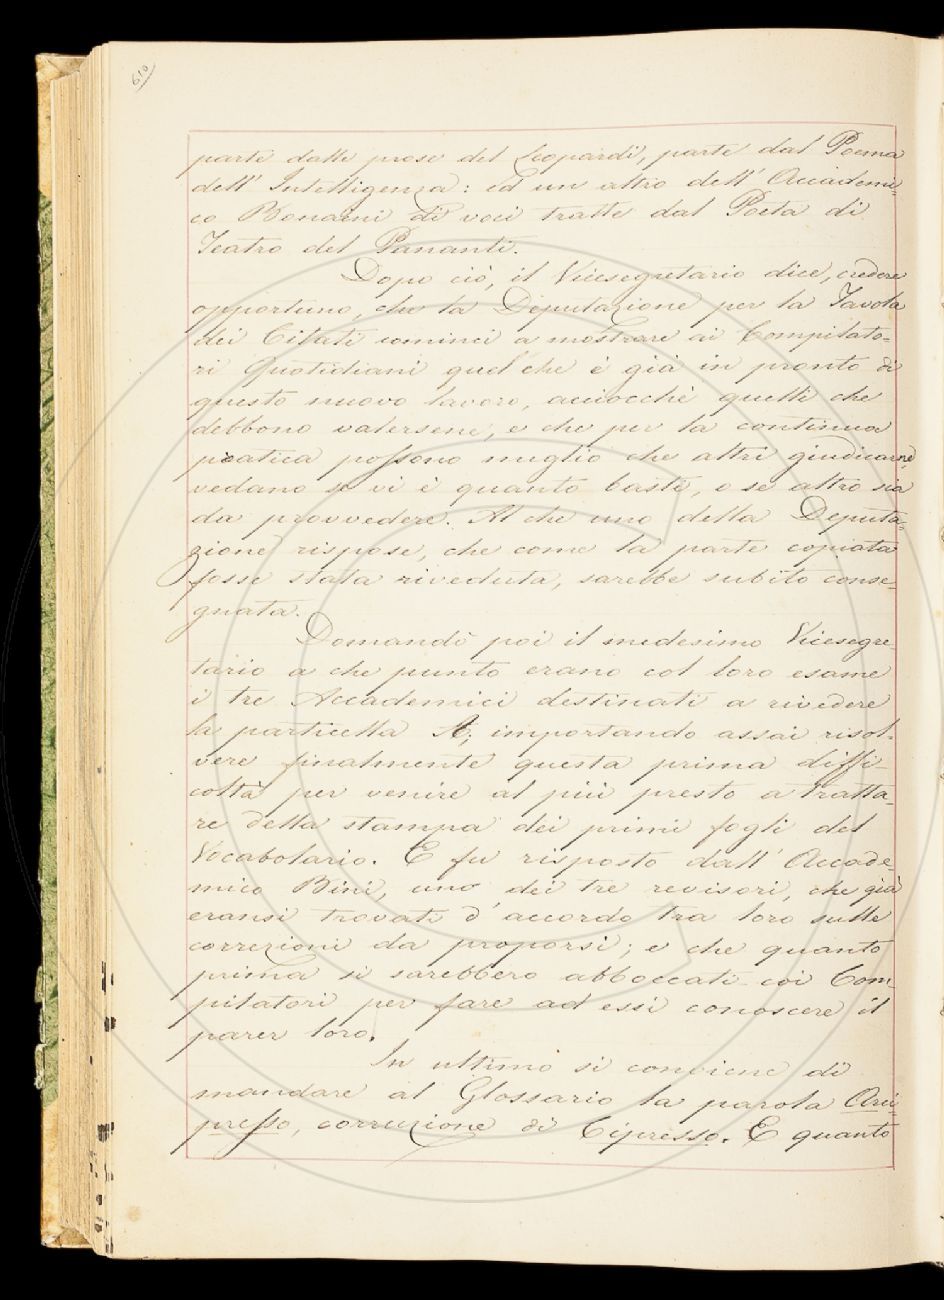 610
parte dalle prose del Leopardi, parte dal Poema
dell' Intelligenza: ed un altro dell' Accademi-
co Bonaini di voci tratte dal Poeta di
Teatro del Pananti.
Dopo ciò, il Vicesegretario dice, credere
opportuno, che la Deputazione per la Tavola
dei Citati cominci a mostrare ai Compilato-
ri Quotidiani quel che è già in pronto di
questo nuovo lavoro, acciocchè quelli che
debbono valersene, e che per la continua
pratica possono meglio che altri giudicarne,
vedano se vi è quanto basti, o se altro sia
da provvedere. Al che uno della Deputa-
zione rispose, che come la parte copiata
fosse stata riveduta, sarebbe subito conse-
gnata.
Domandò poi il medesimo Vicesegre-
tario a che punto erano col loro esame
i tre Accademici destinati a rivedere
la particella A; importando assai risol-
vere finalmente questa prima diffi-
coltà per venire al più presto a tratta-
re della stampa dei primi fogli del
Vocabolario. E fu risposto dall' Accade-
mico Bini, uno dei tre revisori, che già
eransi trovati d'accordo tra loro sulle
correzioni da proporsi; e che quanto
prima si sarebbero abboccati coi Com-
pilatori per fare ad essi conoscere il
parer loro.
In ultimo si conviene di
mandare al Glossario la parola Arci-
presso, corruzione di Cipresso. E quanto